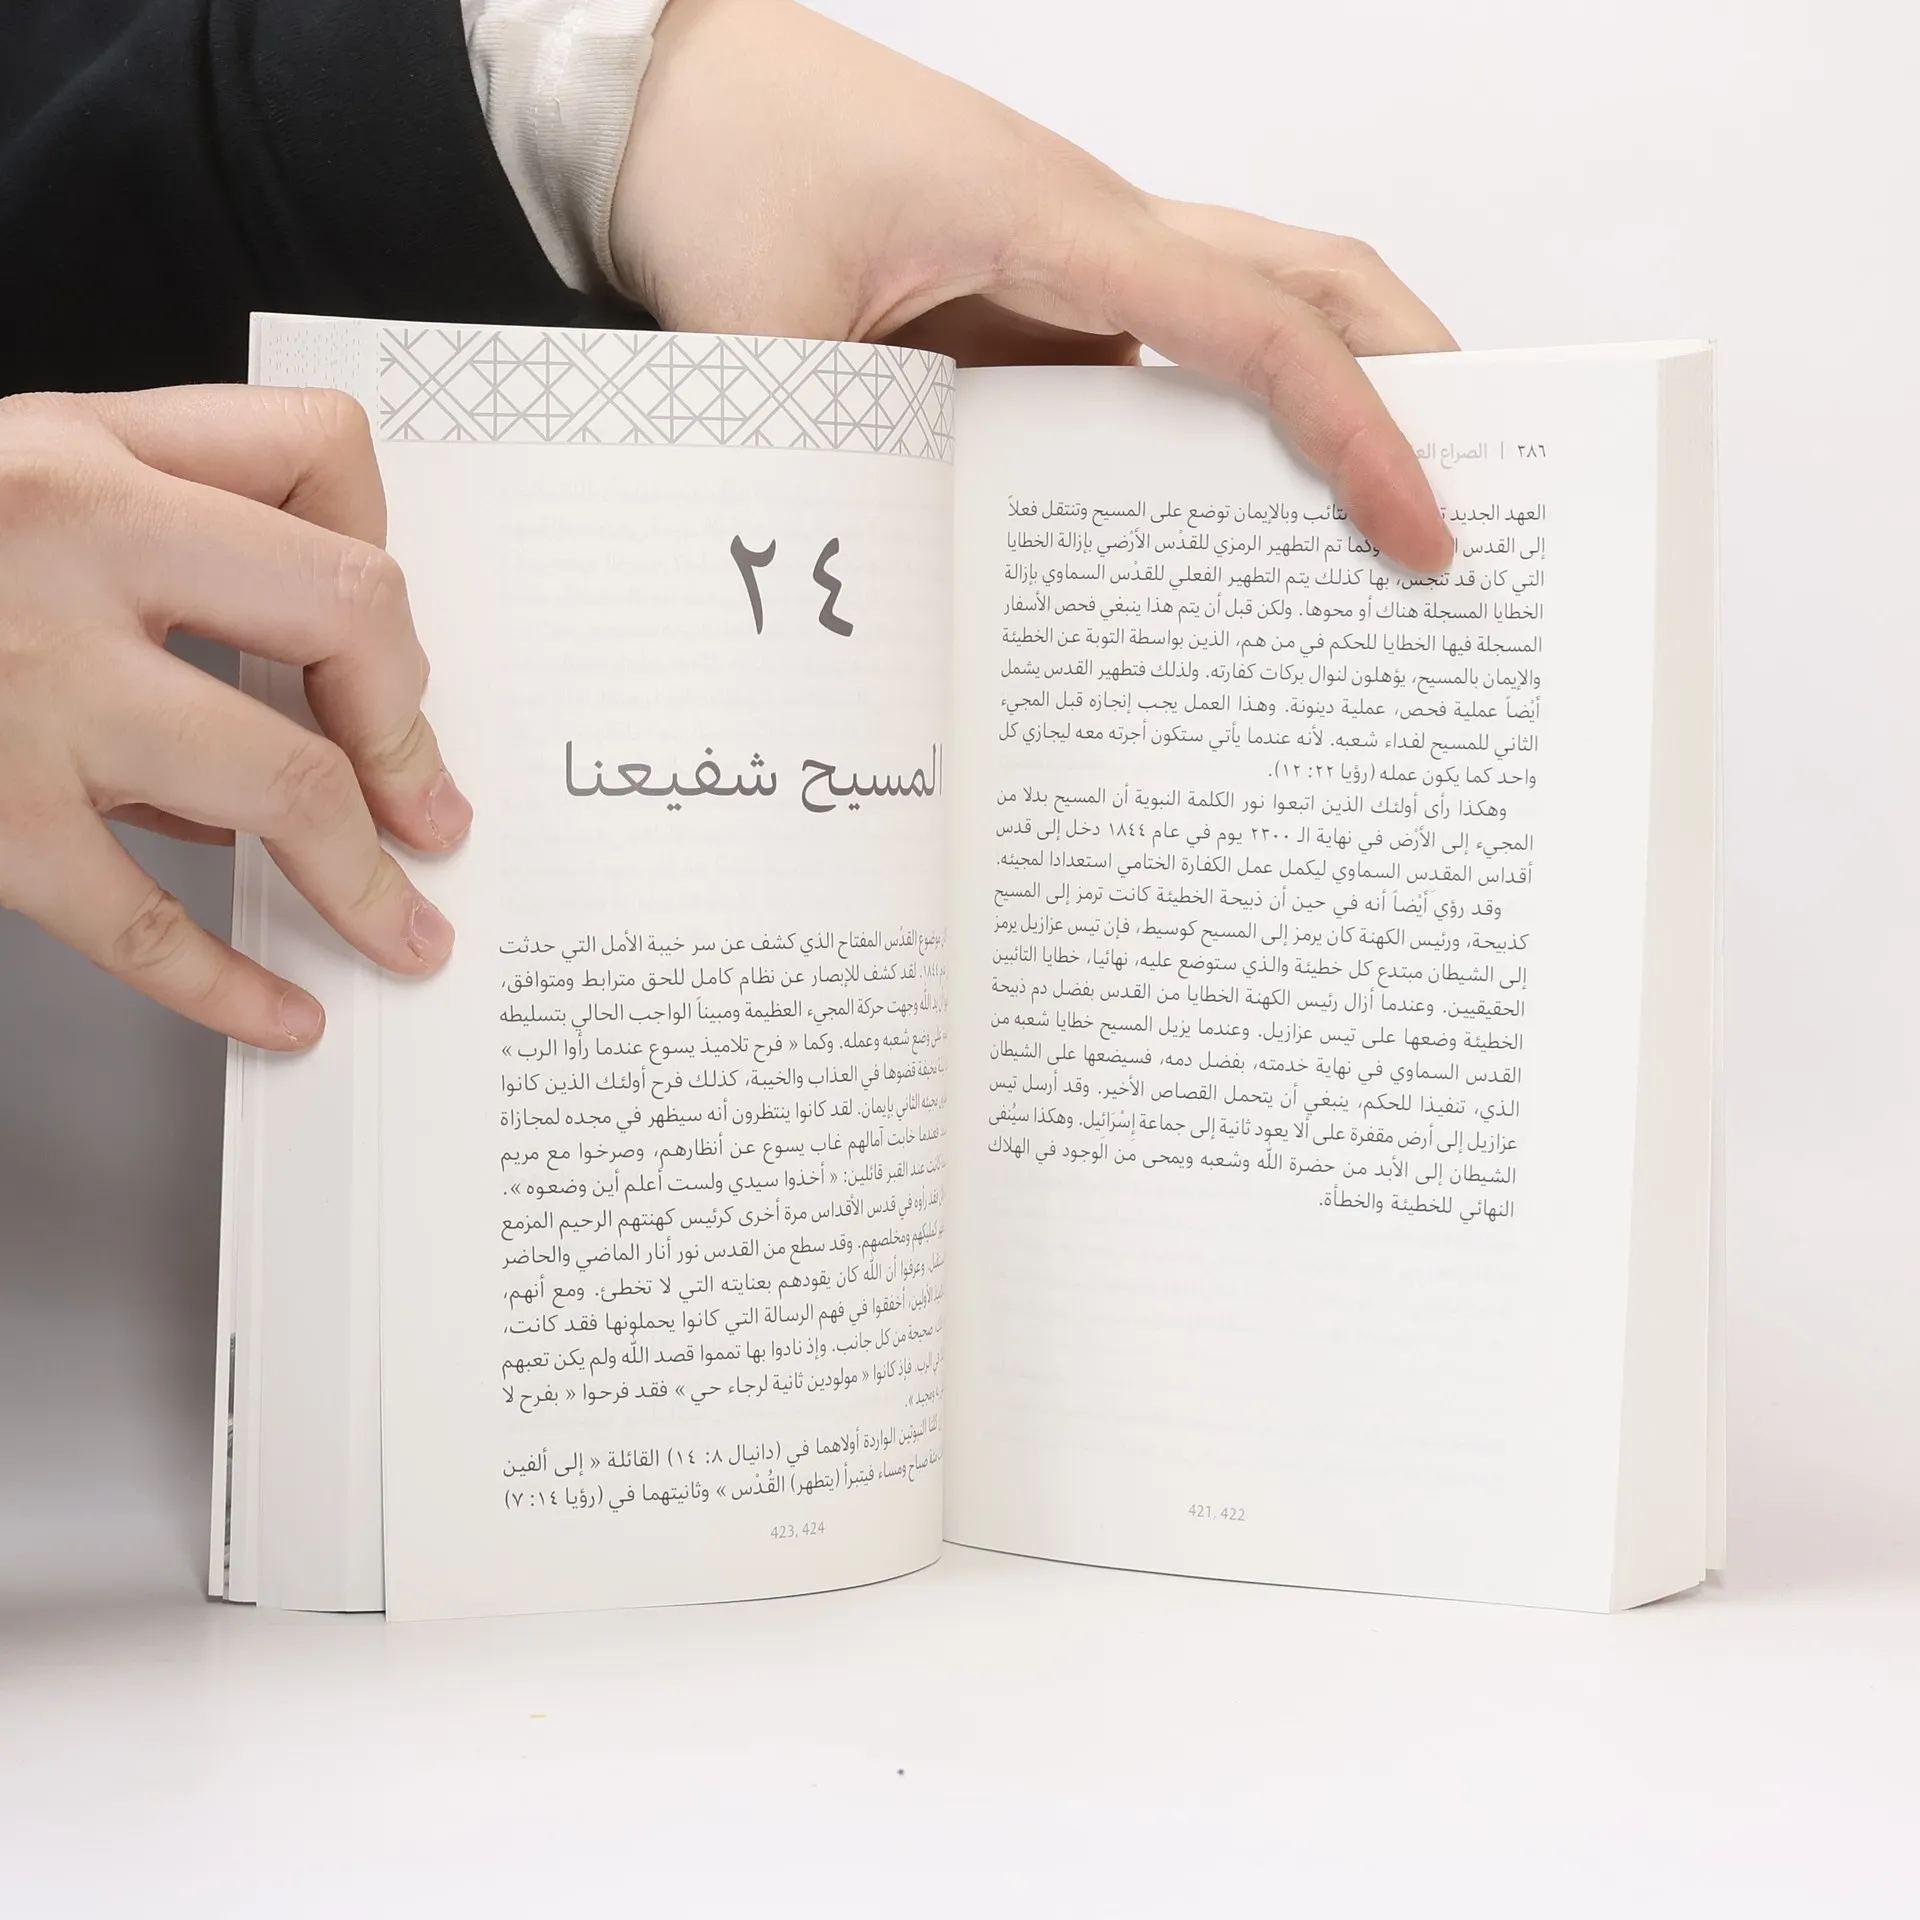 ٣٨٦ | الصراع
العهد الجديد وبالإيمان توضع على المسيح وتنتقل فعلاً
إلى القدس وكما تم التطهير الرمزي للقدْس الأرْضي بإزالة الخطايا
التي كان قد تنجس، بها كذلك يتم التطهير الفعلي للقدْس السماوي بإزالة
الخطايا المسجلة هناك أو محوها. ولكن قبل أن يتم هذا ينبغي فحص الأسفار
المسجلة فيها الخطايا للحكم في من هم، الذين بواسطة التوبة عن الخطيئة
والإيمان بالمسيح، يؤهلون لنوال بركات كفارته. ولذلك فتطهير القدس يشمل
أيْضاً عملية فحص، عملية دينونة. وهذا العمل يجب إنجازه قبل المجيء
الثاني للمسيح لفداء شعبه. لأنه عندما يأتي ستكون أجرته معه ليجازي كل
واحد كما يكون عمله (رؤيا ٢٢: ١٢).
وهكذا رأى أولئك الذين اتبعوا نور الكلمة النبوية أن المسيح بدلا من
المجيء إلى الأرْض في نهاية الـ ٢٣٠٠ يوم في عام ١٨٤٤ دخل إلى قدس
أقداس المقدس السماوي ليكمل عمل الكفارة الختامي استعدادا لمجيئه.
وقد رؤي أيْضاً أنه في حين أن ذبيحة الخطيئة كانت ترمز إلى المسيح
كذبيحة، ورئيس الكهنة كان يرمز إلى المسيح كوسيط، فإن تيس عزازيل يرمز
إلى الشيطان مبتدع كل خطيئة والذي ستوضع عليه، نهائيا، خطايا التائبين
الحقيقيين. وعندما أزال رئيس الكهنة الخطايا من القدس بفضل دم ذبيحة
الخطيئة وضعها على تيس عزازيل. وعندما يزيل المسيح خطايا شعبه من
القدس السماوي في نهاية خدمته، بفضل دمه، فسيضعها على الشيطان
الذي، تنفيذا للحكم، ينبغي أن يتحمل القصاص الأخير. وقد أرسل تيس
عزازيل إلى أرض مقفرة على ألا يعود ثانية إلى جماعة إسْرَائيل. وهكذا سيُنفى
الشيطان إلى الأبد من حضرة الله وشعبه ويمحى من الوجود في الهلاك
النهائي للخطيئة والخطأة.
421, 422
٢٤
المسيح شفيعنا
موضوع القدْس المفتاح الذي كشف عن سر خيبة الأمل التي حدثت
١٨٤٤. لقد كشف للإبصار عن نظام كامل للحق مترابط ومتوافق،
يد الله وجهت حركة المجيء العظيمة ومبيناً الواجب الحالي بتسليطه
على وضع شعبه وعمله. وكما « فرح تلاميذ يسوع عندما رأوا الرب »
مخيفة قضوها في العذاب والخيبة، كذلك فرح أولئك الذين كانوا
مجيئه الثاني بإيمان. لقد كانوا ينتظرون أنه سيظهر في مجده لمجازاة
فعندما خابت آمالهم غاب يسوع عن أنظارهم، وصرخوا مع مريم
كانت عند القبر قائلين: « أخذوا سيدي ولست أعلم أين وضعوه ».
فقد رأوه في قدس الأقداس مرة أخرى كرئيس كهنتهم الرحيم المزمع
كمليكهم ومخلصهم. وقد سطع من القدس نور أنار الماضي والحاضر
وعرفوا أن الله كان يقودهم بعنايته التي لا تخطئ. ومع أنهم،
الأولين، أخفقوا في فهم الرسالة التي كانوا يحملونها فقد كانت،
صحيحة من كل جانب. وإذ نادوا بها تمموا قصد الله ولم يكن تعبهم
في الرب. فإذ كانوا « مولودين ثانية لرجاء حي » فقد فرحوا « بفرح لا
ومجيد ».
كلتا النبوتين الواردة أولاهما في (دانيال ٨: ١٤) القائلة « إلى ألفين
صباح ومساء فيتبرأ (يتطهر) القُدْس » وثانيتهما في (رؤيا ١٤: ٧)
423, 424